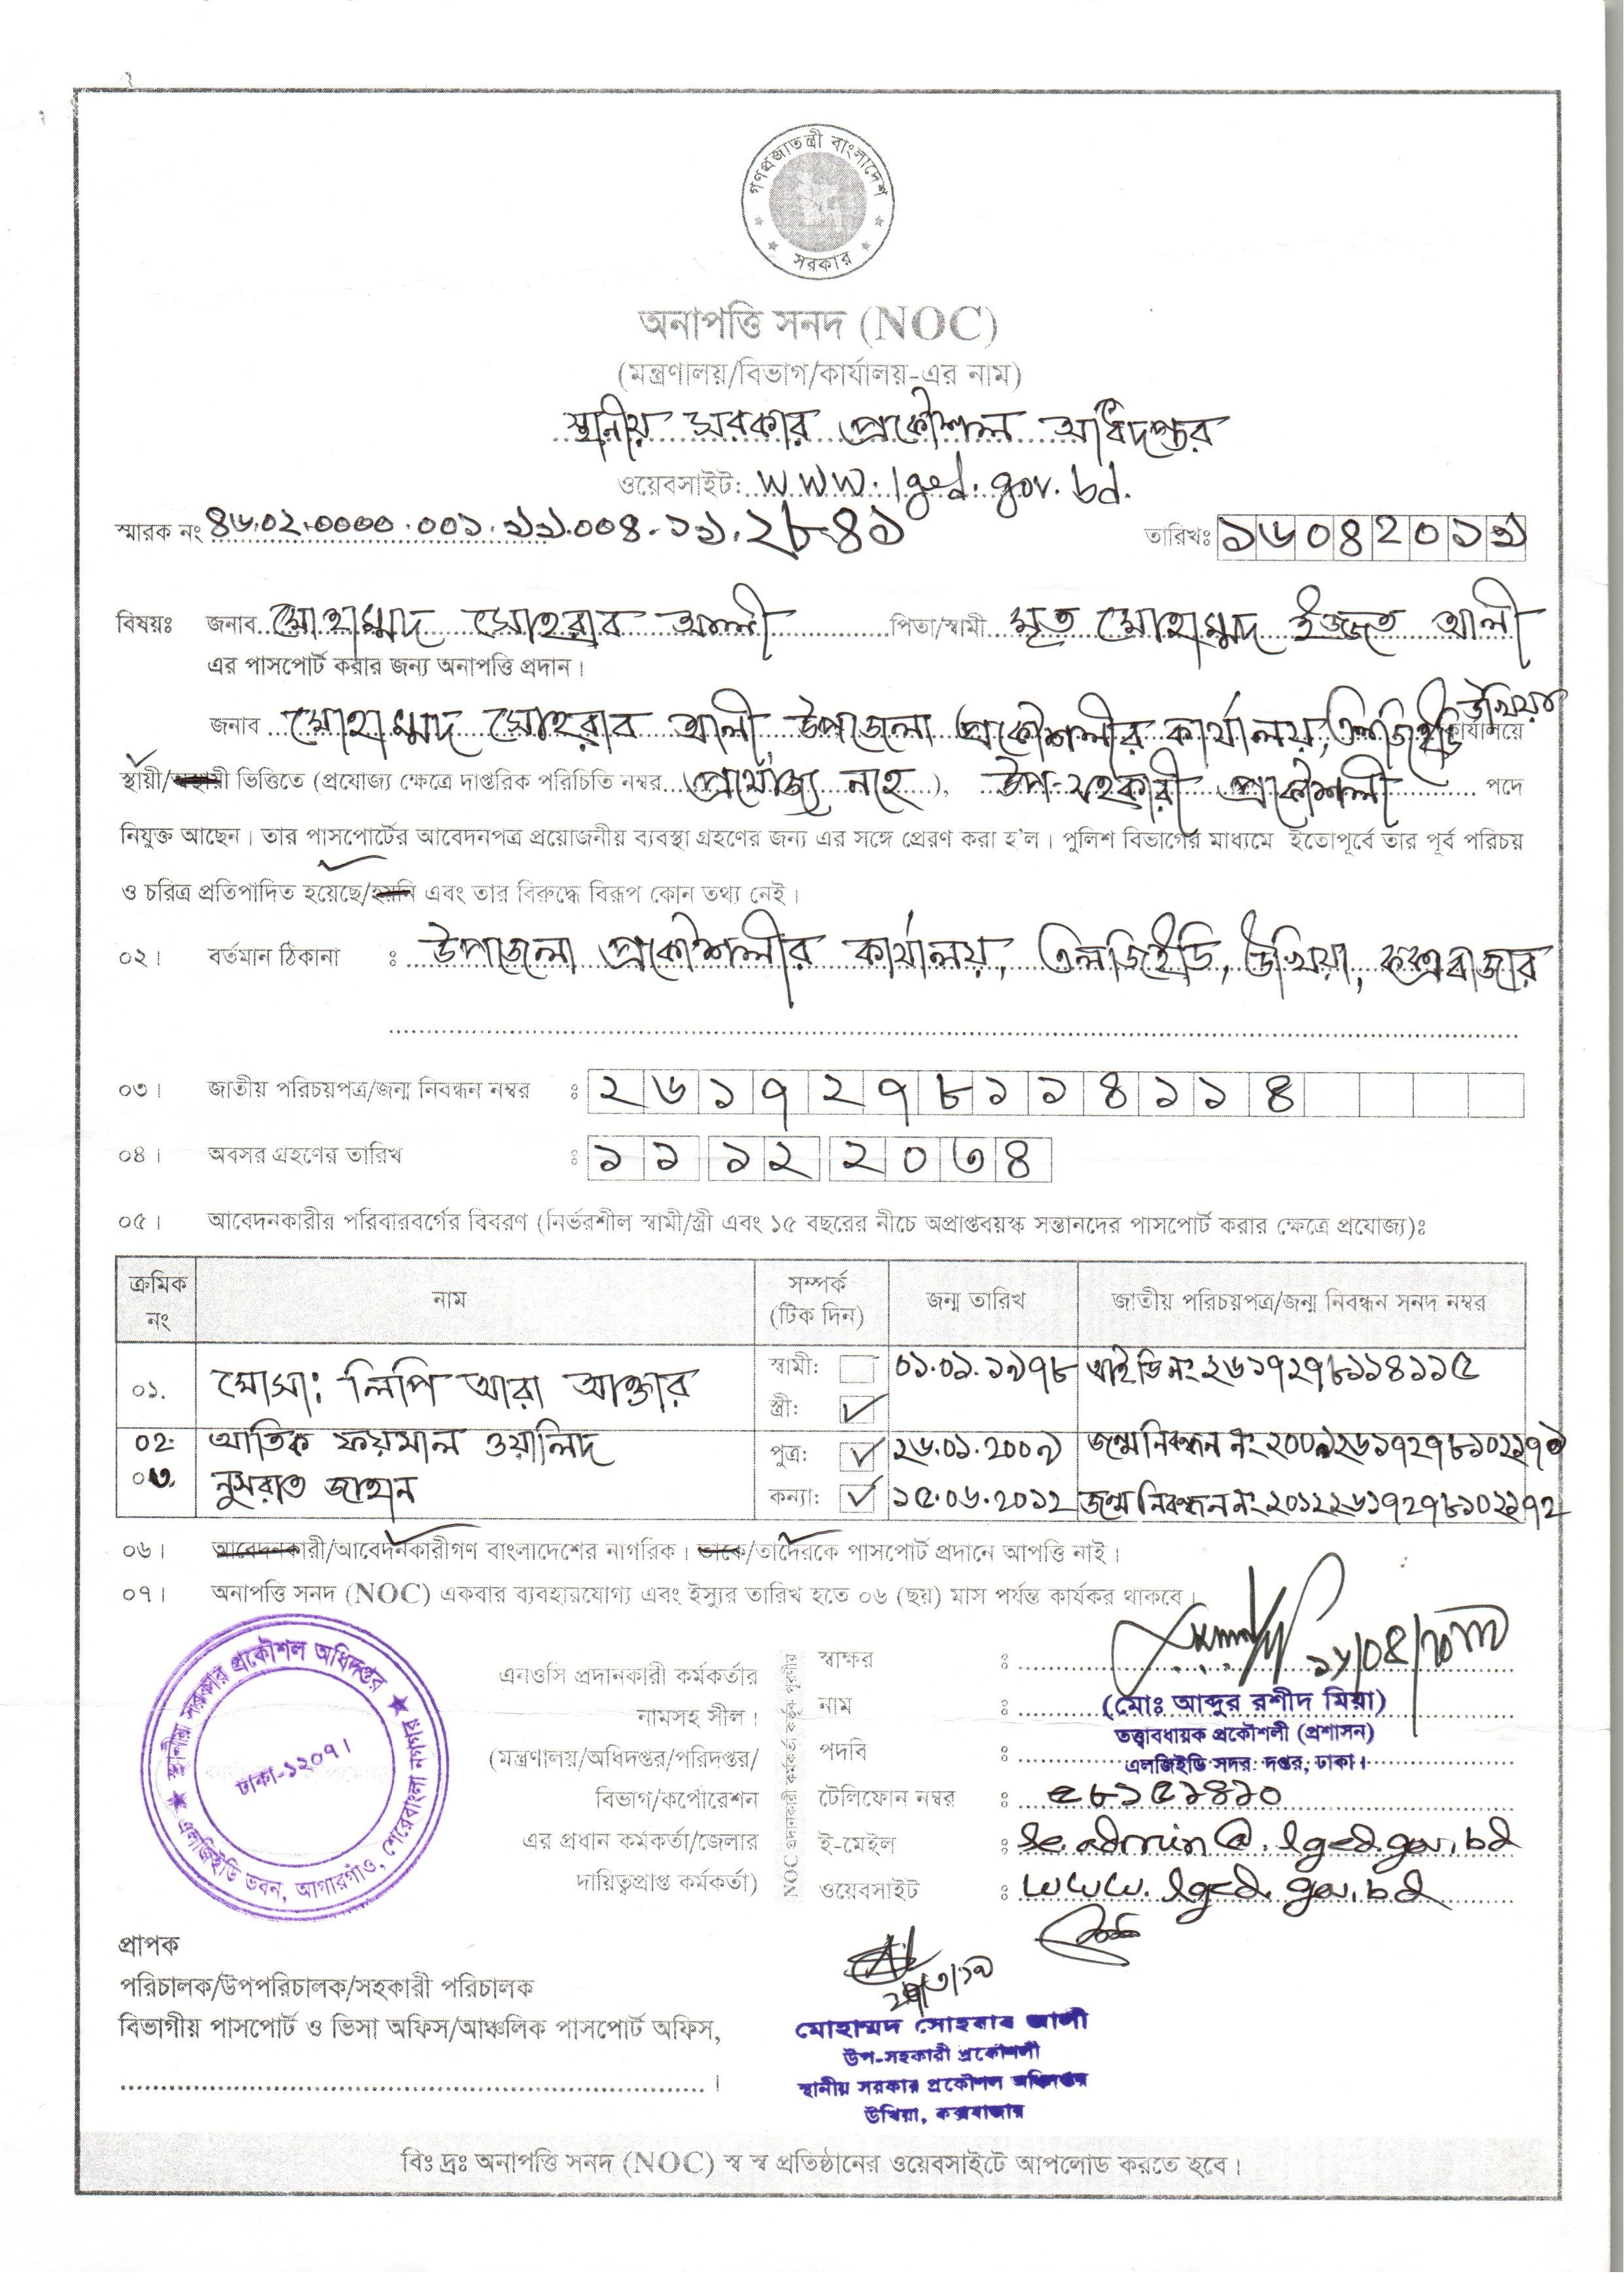 গণপ্রজাতন্ত্রী বাংলাদেশ
সরকার
অনাপত্তি সনদ (NOC)
(মন্ত্রণালয়/বিভাগ/কার্যালয়-এর নাম)
স্থানীয় সরকার প্রকৌশল অধিদপ্তর
ওয়েবসাইট: www.lged.gov.bd.
স্মারক নং ৪৬.০২.০০০০.০০১.১১.০০৪.১১.২৮৪১ তারিখঃ ১৬০৪২০১৯
বিষয়ঃ জনাব মোহাম্মাদ সোহরাব আলী পিতা/স্বামী মৃত মোহাম্মদ ইজ্জত আলী
এর পাসপোর্ট করার জন্য অনাপত্তি প্রদান।
জনাব মোহাম্মাদ সোহরাব আলী, উপজেলা প্রকৌশলীর কার্যালয়, এলজিইডি উখিয়া কার্যালয়ে
স্থায়ী/অস্থায়ী ভিত্তিতে (প্রযোজ্য ক্ষেত্রে দাপ্তরিক পরিচিতি নম্বর প্রযোজ্য নহে), উপ-সহকারী প্রকৌশলী পদে
নিযুক্ত আছেন। তার পাসপোর্টের আবেদনপত্র প্রয়োজনীয় ব্যবস্থা গ্রহণের জন্য এর সঙ্গে প্রেরণ করা হ'ল। পুলিশ বিভাগের মাধ্যমে ইতোপূর্বে তার পূর্ব পরিচয়
ও চরিত্র প্রতিপাদিত হয়েছে/হয়নি এবং তার বিরুদ্ধে বিরূপ কোন তথ্য নেই।
০২। বর্তমান ঠিকানা : উপজেলা প্রকৌশলীর কার্যালয়, এলজিইডি, উখিয়া, কক্সবাজার
০৩। জাতীয় পরিচয়পত্র/জন্ম নিবন্ধন নম্বর : ২৬১৭২৭৮১১৪১১৪
০৪। অবসর গ্রহণের তারিখ : ১১ ১২ ২০৩৪
০৫। আবেদনকারীর পরিবারবর্গের বিবরণ (নির্ভরশীল স্বামী/স্ত্রী এবং ১৫ বছরের নীচে অপ্রাপ্তবয়স্ক সন্তানদের পাসপোর্ট করার ক্ষেত্রে প্রযোজ্য)ঃ
ক্রমিক নং নাম সম্পর্ক (টিক দিন) জন্ম তারিখ জাতীয় পরিচয়পত্র/জন্ম নিবন্ধন সনদ নম্বর
০১. মোসা: লিপি আরা আক্তার স্বামী: ০১.০১.১৯৭৮ আইডি নং ২৬১৭২৭৮১১৪১১৫
স্ত্রী: ✓
০২. আতিক ফয়সাল ওয়ালিদ পুত্র: ✓ ২৬.০১.২০০৭ জন্ম নিবন্ধন নং
০৩. নুসরাত জাহান কন্যা: ✓ ১৫.০৬.২০১২ জন্ম নিবন্ধন নং ২০১২২৬১৭২৭৮১০২১৭২
০৬। আবেদনকারী/আবেদনকারীগণ বাংলাদেশের নাগরিক। তাকে/তাদেরকে পাসপোর্ট প্রদানে আপত্তি নাই।
০৭। অনাপত্তি সনদ (NOC) একবার ব্যবহারযোগ্য এবং ইস্যুর তারিখ হতে ০৬ (ছয়) মাস পর্যন্ত কার্যকর থাকবে।
স্থানীয় সরকার প্রকৌশল অধিদপ্তর
এলজিইডি ভবন, আগারগাঁও, শেরেবাংলা নগর
ঢাকা-১২০৭।
এনওসি প্রদানকারী কর্মকর্তার
নামসহ সীল।
(মন্ত্রণালয়/অধিদপ্তর/পরিদপ্তর/
বিভাগ/কর্পোরেশন
এর প্রধান কর্মকর্তা/জেলার
দায়িত্বপ্রাপ্ত কর্মকর্তা)
NOC প্রদানকারী কর্মকর্তা কর্তৃক পূরণীয়
স্বাক্ষর :
নাম : (মোঃ আব্দুর রশীদ মিয়া)
তত্ত্বাবধায়ক প্রকৌশলী (প্রশাসন)
পদবি : এলজিইডি সদর দপ্তর, ঢাকা।
টেলিফোন নম্বর : ৫৮১৫১৪১০
ই-মেইল : se.admin@.lged.gov.bd
ওয়েবসাইট : www.lged.gov.bd
প্রাপক
পরিচালক/উপপরিচালক/সহকারী পরিচালক
বিভাগীয় পাসপোর্ট ও ভিসা অফিস/আঞ্চলিক পাসপোর্ট অফিস,
মোহাম্মদ সোহরাব আলী
উপ-সহকারী প্রকৌশলী
স্থানীয় সরকার প্রকৌশল অধিদপ্তর
উখিয়া, কক্সবাজার
বিঃ দ্রঃ অনাপত্তি সনদ (NOC) স্ব স্ব প্রতিষ্ঠানের ওয়েবসাইটে আপলোড করতে হবে।